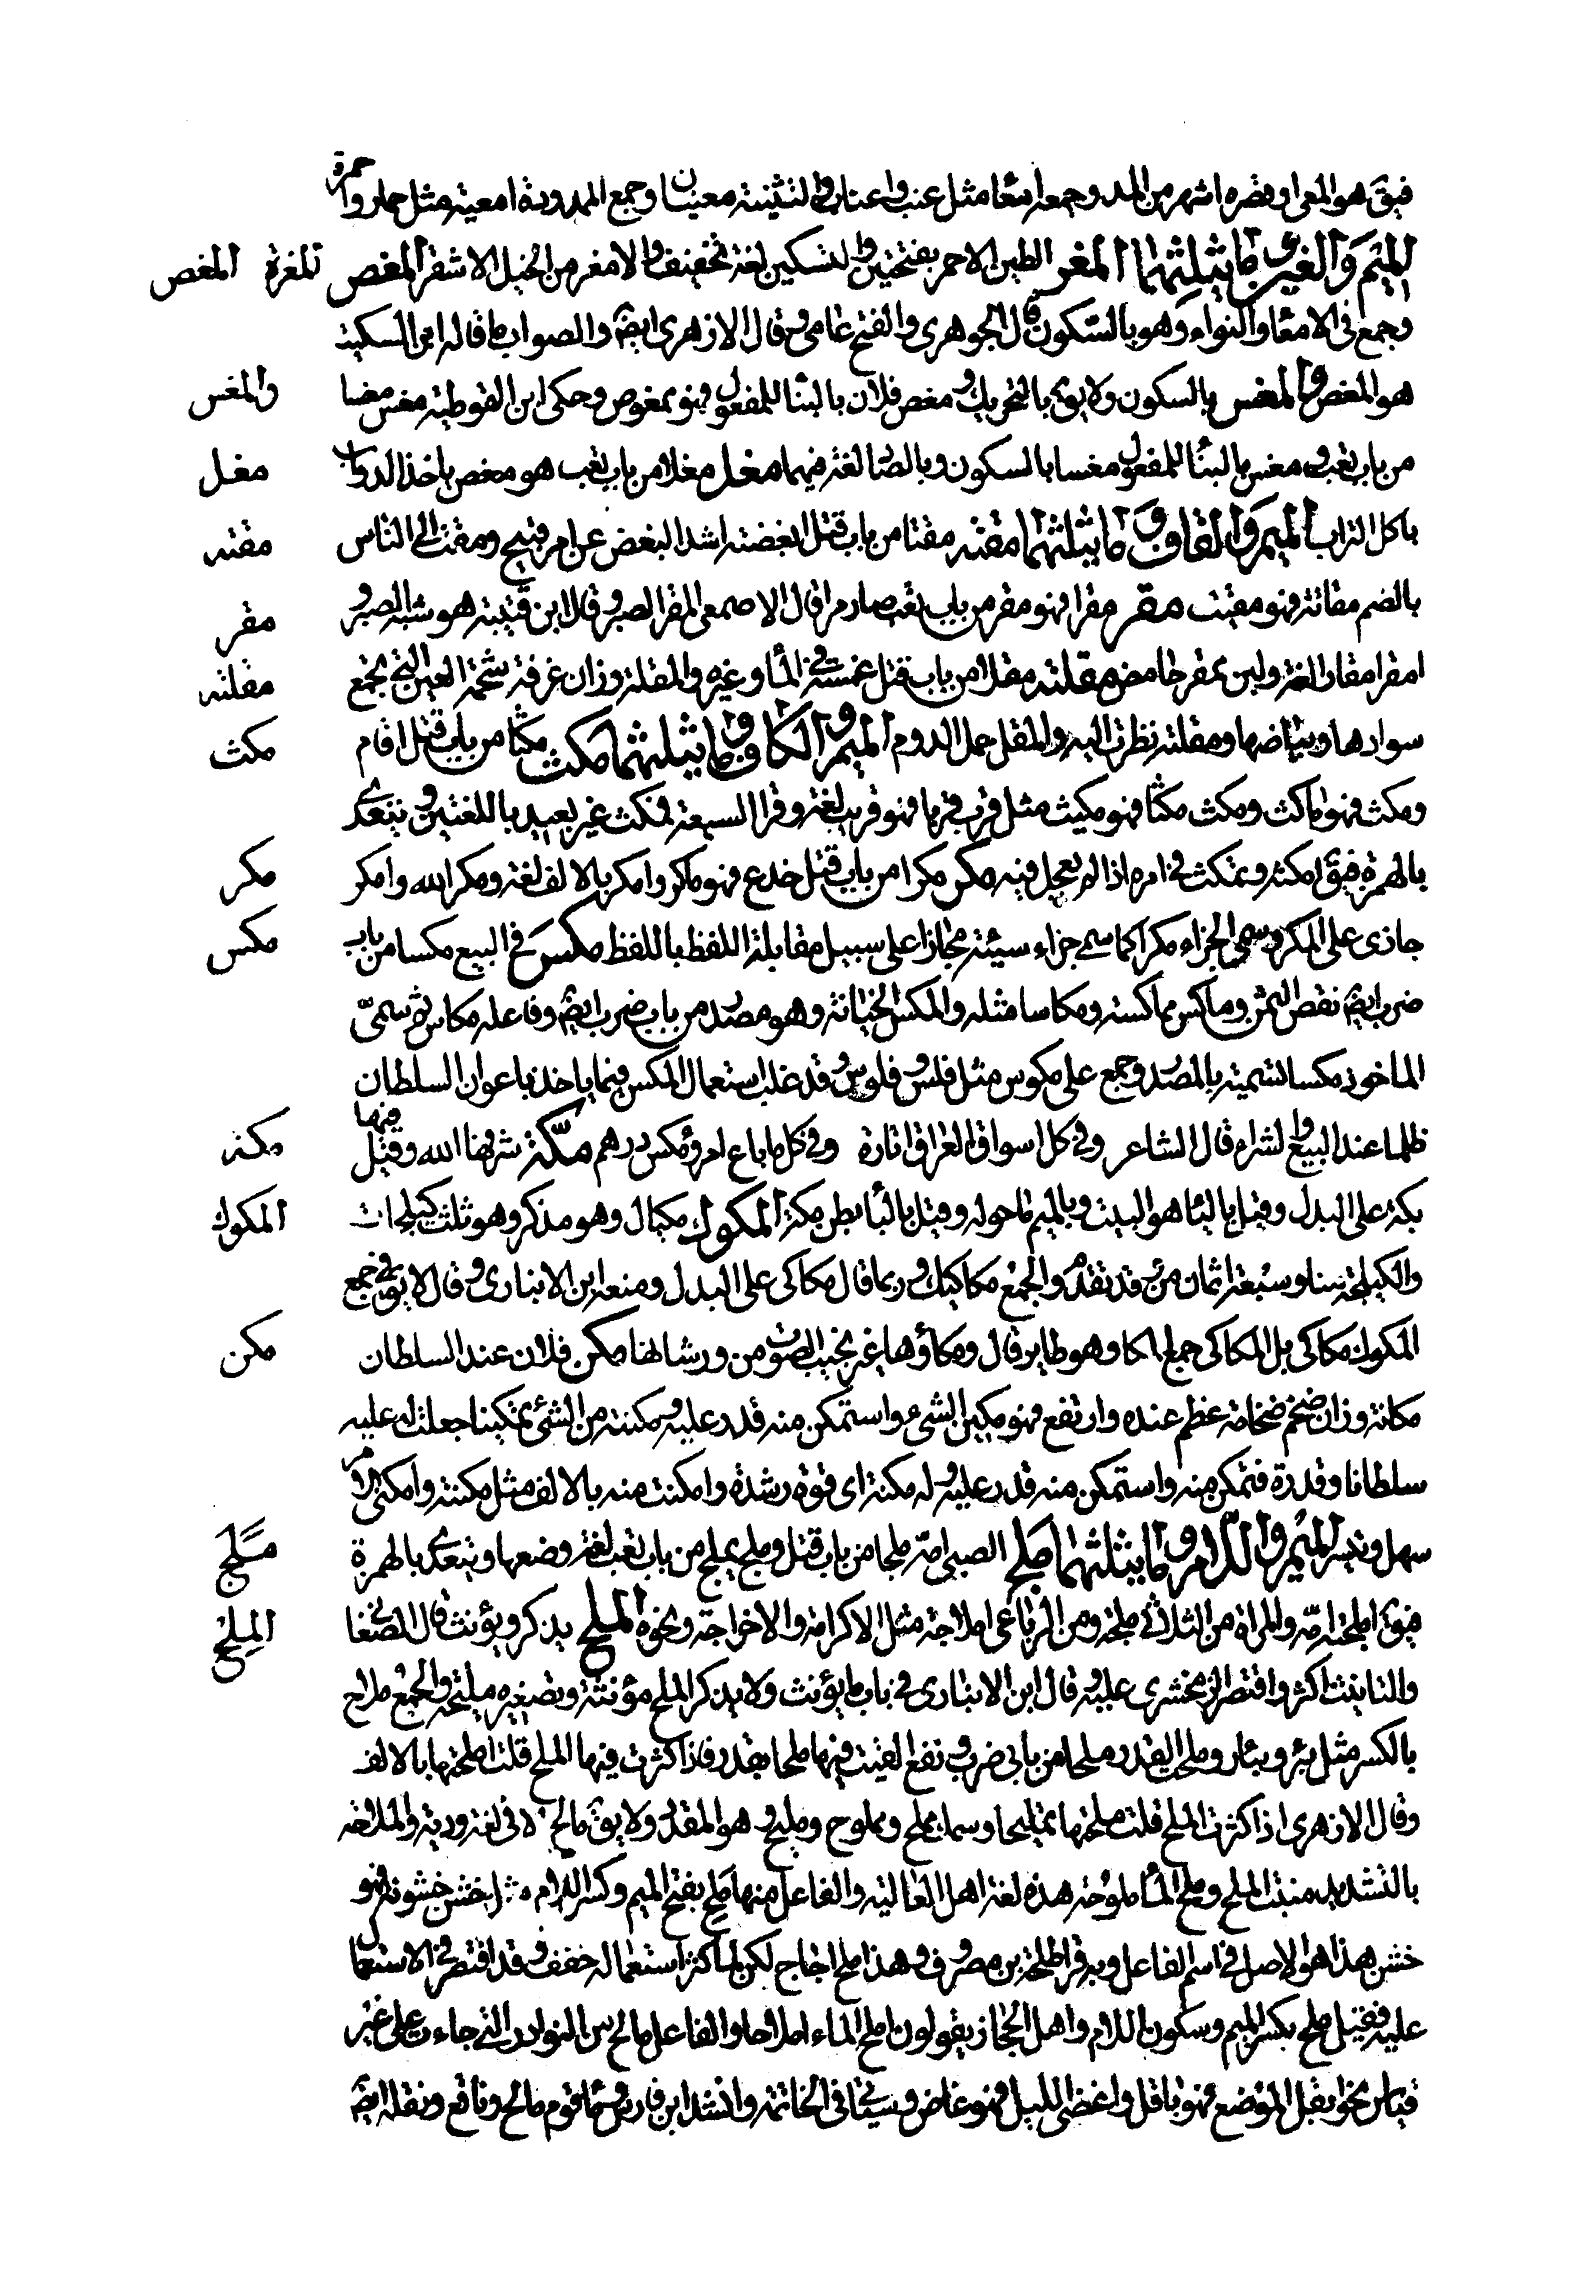 فيق هو المعى وقصره اشهر من المد وجمعه امعا مثل عنب واعناب والتثنية معيان وجمع الممدودة امعية مثل حمار واحمرة
الميم والغين وما يثلثهما المغر الطين الاحمر بفتحتين والتسكين لغة تخفيف والامغر من الخيل الاشقر المغص المغرة المغص
وجع فى الامعا والتواء وهو بالسكون قال الجوهرى والفتح عامى وقال الازهرى ايضا والصواب ما قاله ابن السكيت
هو المغص والمغس بالسكون ولا يق بالتحريك ومغص فلان بالبنا للمفعول فهو ممغوص وحكى ابن القوطية مغس مغسا والمغس
من باب تعب ومغس بالبنا للمفعول مغسا بالسكون وبالصاد لغة فيهما مغل مغلا من باب تعب هو مغص ياخذ الدواب مغل
باكل التراب الميم والقاف وما يثلثهما مقته مقتا من باب قتل ابغضته اشد البغض عن امر قبيح ومقت الى الناس مقته
بالضم مقاتة فهو مقيت مقر مقرا فهو مقر من باب تعب صار مرا قال الاصمعى المقر الصبر وقال ابن قتيبة هو شبه الصبر و مقر
امقر امقارا لغة ولبن ممقر حامض مقلته مقلا من باب قتل غمسته فى الما وغيره والمقلة وزان غرفة شحمة العين التى تجمع مقلته
سوادها وبياضها ومقلته نظرت اليه والمقل حمل الدوم الميم والكاف وما يثلثهما مكث مكثا من باب قتل اقام مكث
ومكث فهو ماكث ومكث مكثا فهو مكيث مثل قرب قربا فهو قريب لغة وقرا السبعة فمكث غير بعيد باللغتين ويتعدى
بالهمزة فيق امكثه وتمكث فى امره اذا لم يعجل فيه مكر مكرا من باب قتل خدع فهو ماكر وامكر بالالف لغة ومكر الله وامكر مكر
جازى على المكر وسمى الجزاء مكرا كما سمى جزاء سيئة مجازا على سبيل مقابلة اللفظ باللفظ مكس فى البيع مكسا من باب مكس
ضرب ايض نقص الثمن وماكس مماكسة ومكاسا مثله والمكس الجباية وهو مصدر من باب ضرب ايض وفاعله مكاس ثم سمى
الماخوذ مكسا تسمية بالمصدر وجمع على مكوس مثل فلس وفلوس وقد غلب استعمال المكس فيما ياخذه اعوان السلطان
ظلما عند البيع والشراء قال الشاعر وفى كل اسواق العراق اتاوة وفى كل ما باع امرؤ مكس درهم مكة شرفها الله وقيل فيها مكة
بكة على البدل وقيل بالبا هو البيت وبالميم ما حوله وقيل بالبا بطن مكة المكوك مكيال وهو مذكر وهو ثلث كيلجات المكوك
والكيلجة منا وسبعة اثمان من قد تقدم والجمع مكاكيك وربما قال مكاكى على البدل ومنعه ابن الانبارى وقال لا يق فى جمع
المكوك مكاكى بل المكاكى جمع المكا وهو طاير قال ومكاؤها غير بخيب الصوت من ورشانها مكن فلان عند السلطان مكن
مكانة وزان ضخم ضخامة عظم عنده وارتفع فهو مكين الشىء واستمكن منه قدر عليه ومكنته من الشئ تمكينا جعلت له عليه
سلطانا وقدرة فتمكن منه واستمكن منه قدر عليه وله مكنة اى قوة وشدة وامكنت منه بالالف مثل مكنته وامكنى الامر
سهل وتيسر الميم واللام وما يثلثهما ملج الصبى امه ملجا من باب قتل وملج يملج من باب تعب لغة رضعها ويتعدى بالهمزة ملج
فيق املجته امه والمراة من الثلاثى ملجة ومن الرباعى املاجة مثل الاكرامة والاخراجة ونحوه الملح يذكر ويؤنث قال الصغانى الملح
والتانيث اكثر واقتصر الزمخشرى عليه وقال ابن الانبارى فى باب ما يؤنث ولا يذكر الملح مؤنثة وتصغيره مليحة والجمع ملاح
بالكسر مثل بئر وبئار وملحت القدر ملحا من بابى ضرب ونفع القيت فيها ملحا بقدر فاذا كثرت فيها الملح قلت املحتها بالالف
وقال الازهرى اذا كثرت الملح قلت ملحتها تمليحا وسمك مملح ومملوح ومليح وهو المقدد ولا يق مالح الا فى لغة ردية والملاحة
بالتشديد منبت الملح وملح الما ملوحة هذه لغة اهل العالية والفاعل منها ملح بفتح الميم وكسر اللام مثل خشن خشونة فهو
خشن هذا هو الاصل فى اسم الفاعل وبه قرا طلحة بن مصرف وهذا ملح اجاج لكن لما كثر استعماله خفف وقد اقتصر فى الاستعمال
عليه فقيل ملح بكسر الميم وسكون اللام واهل الحجاز يقولون املح الماء املاحا والفاعل مالح من النوادر التى جاءت على غير
قياس نحو ابقل الموضع فهو باقل واغضى الليل فهو غاض وسياتى فى الخاتمة وانشد ابن فارس وما قوم مالح وناقع ونقله ايض